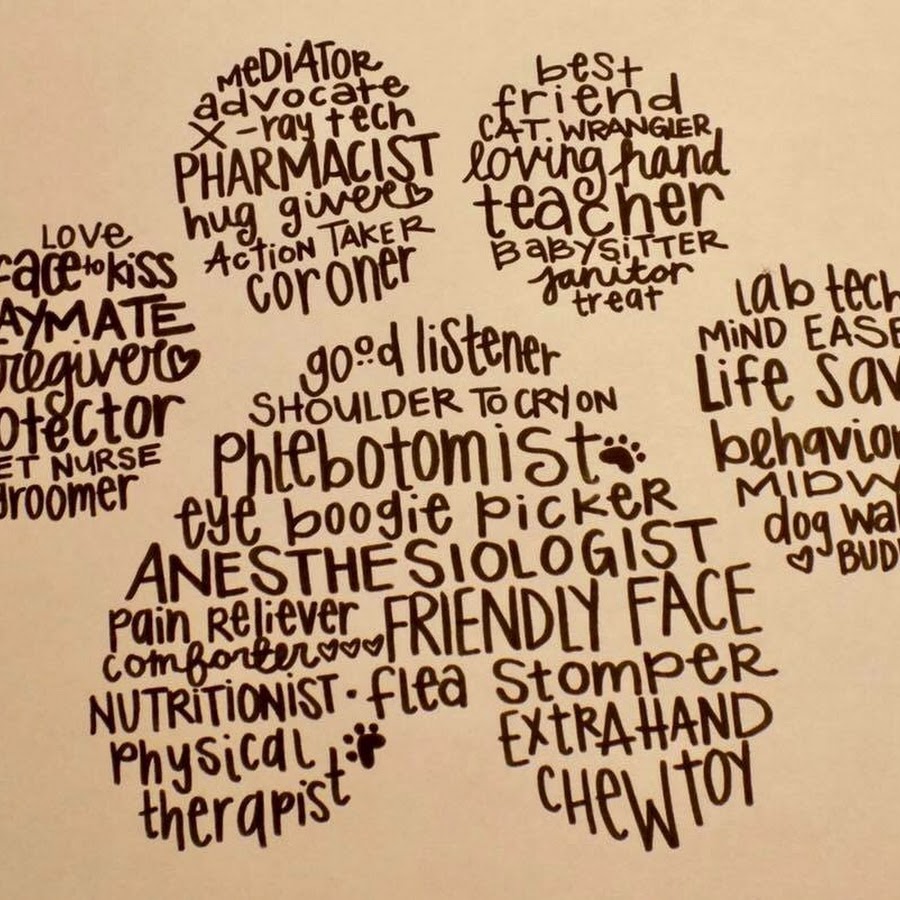 LOVE
face to kiss
AYMATE
regiver
otector
ET NURSE
groomer
MeDiATOR
advocate
X-ray tech
PHARMACIST
hug giver
Action TAKER
coroner
best
friend
CAT. WRANGLER
loving hand
teacher
BABYSITTER
janitor
treat
lab tech
MiND EASE
Life Sav
behavior
MIDW
dog wa
BUD
good listener
SHOULDER TO CRY ON
Phlebotomist
eye boogie picker
ANESTHESIOLOGIST
pain Reliever FRIENDLY FACE
comforter
NUTRITIONIST · flea Stomper
physical EXTRA HAND
therapist CHEWTOY